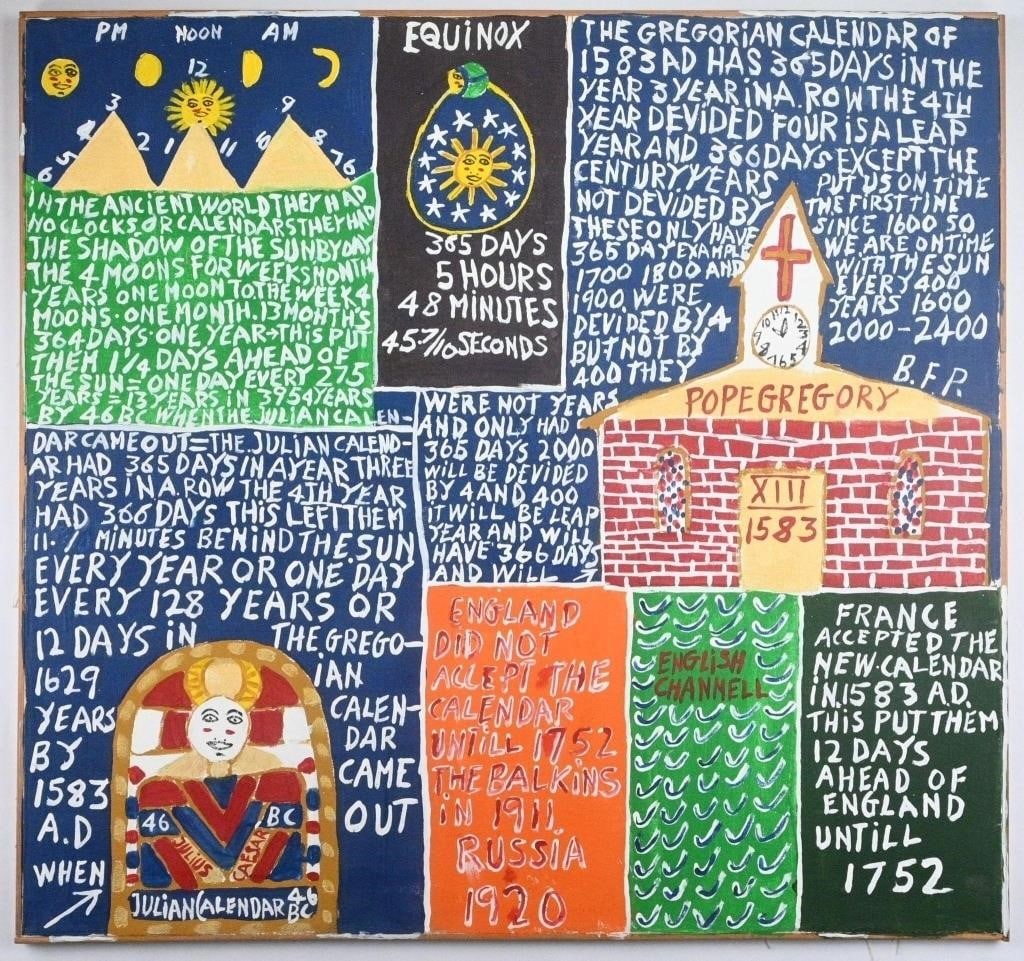 PM NOON AM
12
3 9
4 2 1 11 10 8
5 7
6 6
IN THE ANCIENT WORLD THEY HAD
NO CLOCKS OR CALENDARS THEY HAD
THE SHADOW OF THE SUN BY DAY
THE 4 MOONS FOR WEEKS MONTH
YEARS ONE MOON TO THE WEEK 4
MOONS. ONE MONTH. 13 MONTHS
364 DAYS. ONE YEAR→THIS PUT
THEM 1 1/4 DAYS AHEAD OF
THE SUN = ONE DAY EVERY 275
YEARS = 13 YEARS IN 3954 YEARS
BY 46 BC WHEN THE JULIAN CALEN-
DAR CAME OUT = THE JULIAN CALEND-
AR HAD 365 DAYS IN A YEAR THREE
YEARS IN A. ROW THE 4TH YEAR
HAD 366 DAYS THIS LEFT THEM
11.7 MINUTES BEHIND THE SUN
EVERY YEAR OR ONE DAY
EVERY 128 YEARS OR
12 DAYS IN
1629
YEARS
BY
1583
A.D
WHEN
THE GREGO-
IAN
CALEN-
DAR
CAME
OUT
46 BC
JULIUS CAESAR
JULIAN CALENDAR 46 BC
EQUINOX
365 DAYS
5 HOURS
48 MINUTES
45-7/10 SECONDS
THE GREGORIAN CALENDAR OF
1583 AD HAS 365 DAYS IN THE
YEAR 3 YEAR IN A. ROW THE 4TH
YEAR DEVIDED FOUR IS A LEAP
YEAR AND 366 DAYS EXCEPT THE
CENTURY YEARS
NOT DEVIDED BY
THESE ONLY HAVE
365 DAY EXAMPLE
1700 1800 AND
1900. WERE
DEVIDED BY 4
BUT NOT BY
400 THEY
WERE NOT YEARS
AND ONLY HAD
365 DAYS 2000
WILL BE DEVIDED
BY 4 AND 400
IT WILL BE LEAP
YEAR AND WILL
HAVE 366 DAYS
AND WILL
PUT US ON TIME
THE FIRST TIME
SINCE 1600 SO
WE ARE ON TIME
WITH THE SUN
EVERY 400
YEARS 1600
2000-2400
B.F.P.
POPE GREGORY
XIII
1583
ENGLAND
DID NOT
ACCEPT THE
CALENDAR
UNTILL 1752
THE BALKINS
IN 1911
RUSSIA
1920
ENGLISH
CHANNELL
FRANCE
ACCEPTED THE
NEW.CALENDAR
IN.1583 A.D.
THIS PUT THEM
12 DAYS
AHEAD OF
ENGLAND
UNTILL
1752